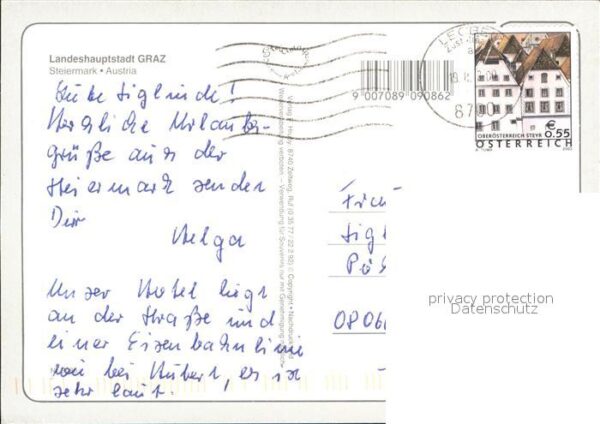 Landeshauptstadt GRAZ
Steiermark • Austria
Liebe Siglinde!
Herzliche Urlaubs-
grüße aus der
Steiermark sendet
Dir
Helga
Unser Hotel liegt
an der Straße und
einer Eisenbahnlinie
wie bei Hubert, es ist
sehr laut.
9 007089 090862
8700
OBERÖSTERREICH STEYR
€ 0.55
ÖSTERREICH
Sigl
080
privacy protection
Datenschutz